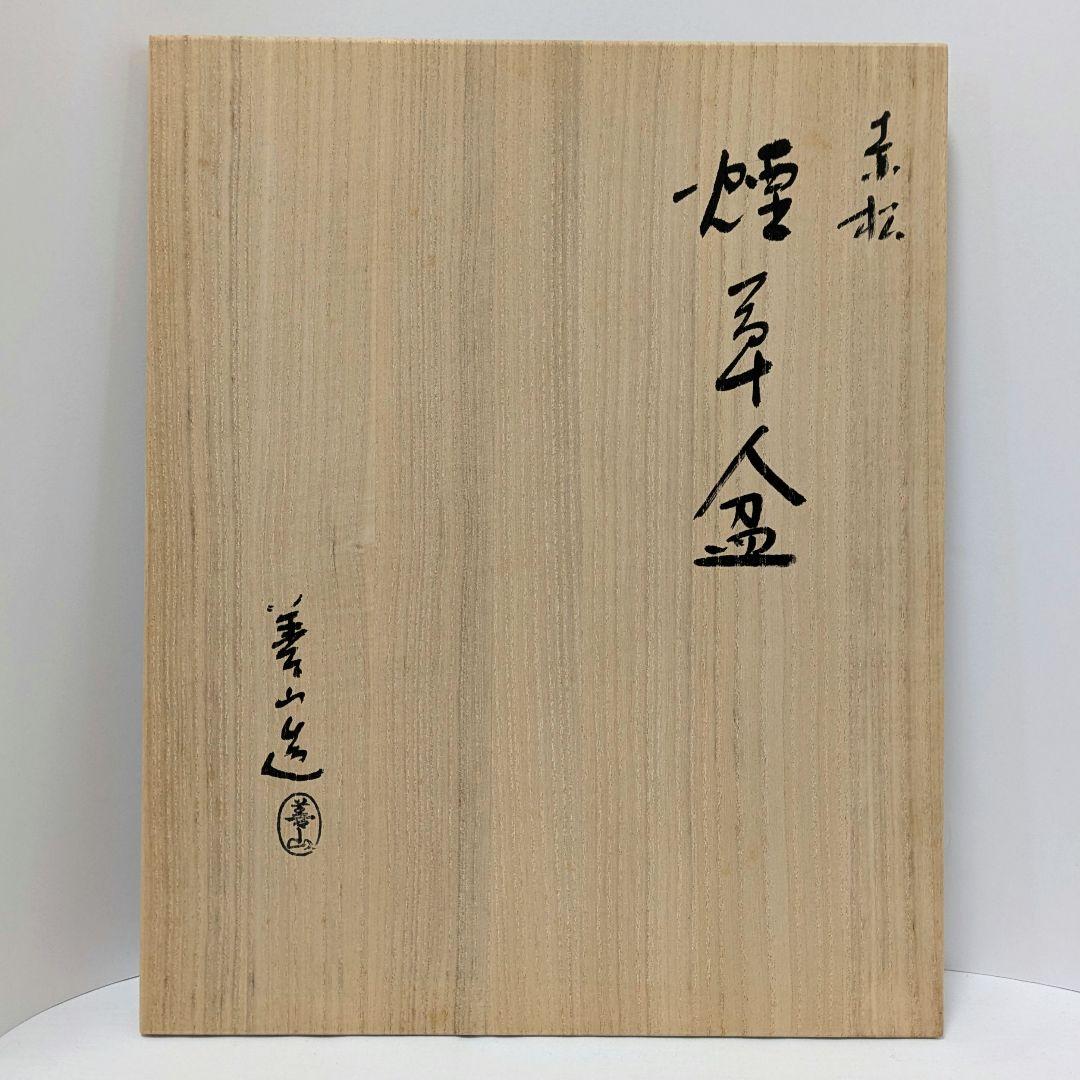 赤松
煙草盆
善山造
善山